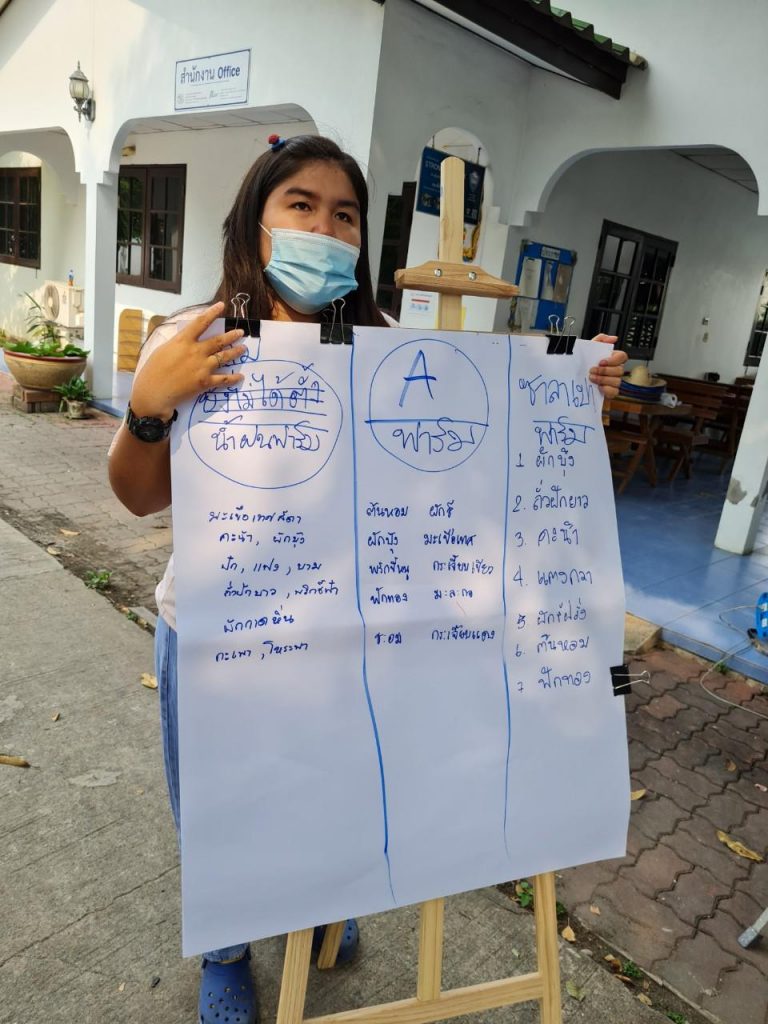 สำนักงาน Office
น้ำฝนฟาร์ม
มะเขือเทศสีดา
คะน้า, ผักบุ้ง
กะเพา, โหระพา
A
ฟาร์ม
ต้นหอม ผักชี
ผักบุ้ง มะเขือเทศ
พริกขี้หนู กระเจี๊ยบเขียว
ฟักทอง มะละกอ
ชะอม กระเจี๊ยบแดง
ซาลาเปา
ฟาร์ม
1. ผักบุ้ง
2. ถั่วฝักยาว
3. คะน้า
4. แตงกวา
5. ผักชีฝรั่ง
6. ต้นหอม
7 ฟักทอง